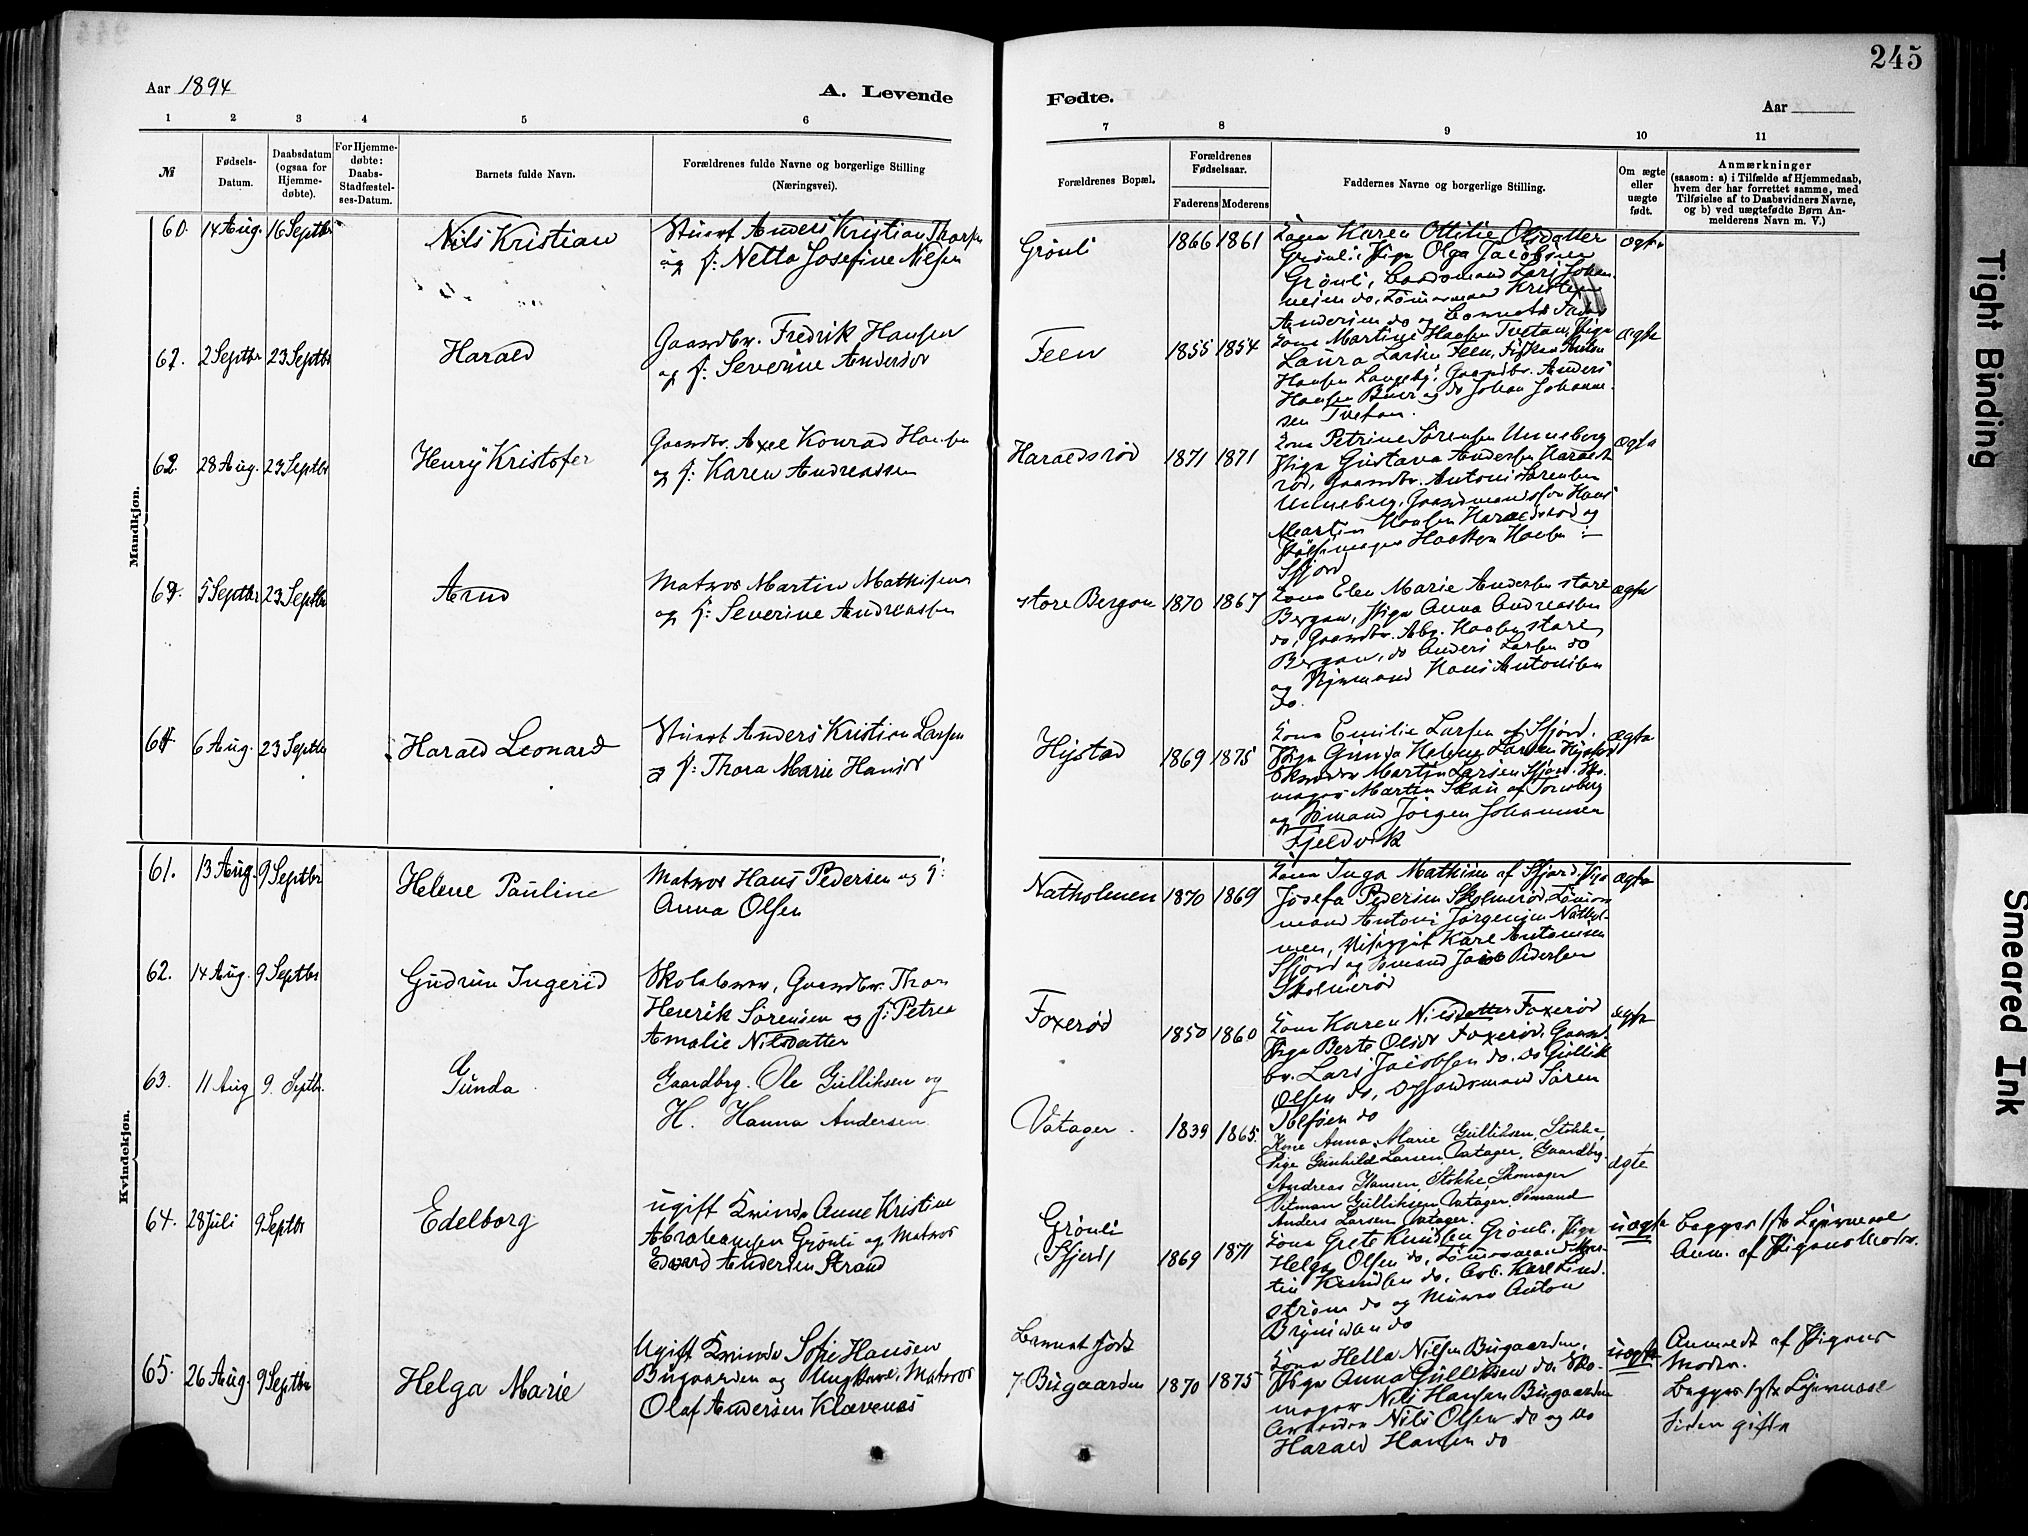 245
Aar 1894
A. Levende
Fødte.
Aar
1 2 3 4 5 6 7 8 9 10 11
№
Fødsels-
Datum.
Daabsdatum
(ogsaa for
Hjemme-
døbte).
For Hjemme-
døbte:
Daabs-
Stadfæstel-
ses-Datum.
Barnets fulde Navn.
Forældrenes fulde Navne og borgerlige Stilling
(Næringsvei).
Forældrenes Bopæl.
Forældrenes
Fødselsaar.
Faderens Moderens
Faddernes Navne og borgerlige Stilling.
Om ægte
eller
uægte
født.
Anmærkninger
(saasom: a) i Tilfælde af Hjemmedaab,
hvem der har forrettet samme, med
Tilføielse af to Daabsvidners Navne,
og b) ved uægtefødte Børn An-
melderens Navn m. V.)
Mandkjøn.
60. 14 Aug. 16 Septbr
Nils Kristian
Stuart Anders Kristian Thorsen
og h: Netta Josefine Nilsen
Grønli
1866 1861
Kona Karen Ottilie Olsdatter
Grønli, Pige Olga Jacobsen
Grønli, Baadsmand Lars Johan
nesen do, Tømmermand Kristian
Andersen do og Barnets Fader
ægte
61. 2 Septbr 23 Septbr
Harald
Gaardbr. Fredrik Hansen
og h: Severine Andersdr
Feen
1855 1854
Kona Martine Hansen Tvetan, Pige
Laura Larsen Feen, Fisker Anton
Hansen Langeby, Gaardbr. Anders
Hansen Buer og do Johan Johanne-
sen Tvetan.
ægte
62. 28 Aug. 23 Septbr
Henry Kristofer
Gaardbr. Axel Konrad Hansen
og h: Karen Andreassen
Haraldsrød
1871 1871
Kona Petrine Sørensen Unneberg
Pige Gustava Andersen Haralds
rød, Gaardbr. Antoni Sørensen
Unneberg, Gaardmandssøn Hans
Martin Hansen Haraldsrød og
Pølsemager Haakon Hansen i
Sfjord
ægte
63. 5 Septbr 23 Septbr
Arnt
Matros Martin Mathisen
og h: Severine Andreassen
store Bergan
1870 1867
Kona Elen Marie Andersen store
Bergan, Pige Anna Andreassen
do, Gaardbr. Abr. Hansen store
Bergan, do Anders Larsen do
og Styrmand Hans Antonisen
do.
ægte
64. 6 Aug. 23 Septbr
Harald Leonard
Stuart Anders Kristian Larsen
og h: Thora Marie Hansdr
Hystad
1869 1875
Kona Emilie Larsen af Sfjord.
Pige Gunda Helene Larsen Hystad
Martin Larsen Sfjord. Sko-
mager Martin Skau af Tønsberg
og Sømand Jørgen Johannesen
Fjeldvik
ægte
Kvindekjøn.
61. 13 Aug. 9 Septbr
Helene Pauline
Matros Hans Pedersen og h:
Anna Olsen
Natholmen
1870 1869
Kona Inga Mathisen af Sfjord, Pige
Josefa Pedersen Skolmerød, Tømmer
mand Antoni Jørgensen Nathol-
men, Karl Antonisen
Sfjord og Sømand Jacob Pedersen
Skolmerød
ægte
62. 14 Aug. 9 Septbr
Gudrun Ingerid
Skolelærer, Gaardbr. Thor
Henrik Sørensen og h: Petrea
Amalie Nilsdatter
Foxerød
1850 1860
Kona Karen Nilsdatter Foxerød
Pige Berte Olsdr Foxerød, Gaard-
br. Lars Jacobsen do. do Gullik
Olsen do, Opsynsmand Søren
do
ægte
63. 11 Aug 9. Septbr.
Gunda
Gaardbrg. Ole Gulliksen og
H. Hanna Andersen
Vatager.
1839 1865.
Kone Anna Marie Gulliksen, Stokke,
Pige Gunhild Larsen Vatager, Gaardbrg.
Andreas Hansen, Stokke, Skomager
Vilman Gulliksen Vatager Sømand
Anders Larsen Vatager.
ægte
64. 28 Juli 9 Septbr
Edelborg
ugift Kvinde Anne Kristine
Abrahamsen Grønli og Matros
Edvard Andersen Strand
Grønli
(Sfjord)
1869 1871
Kona Grete Knudsen Grønli. Pige
Helga Olsen do, Tømmermand Mar-
tin Knudsen do, Arb. Karl Lind-
strøm do og Murer Anton
do
uægte
Begges 1ste Leiermaal
Anm. af Pigens Moder.
65. 26 Aug. 9 Septbr
Helga Marie
Ugift Kvinde Sofie Hansen
Bugaarden og Ungkarl, Matros
Olaf Andersen Klavenes
Barnet født
Bugaarden
1870 1875
Kona Hella Nilsen Bugaarden,
Pige Anna Gulliksen do, Sko-
mager Nils Hansen Bugaarden
Arbeider Nils Olsen do og do
Harald Hansen do
uægte
Anmeldt af Pigens
Moder.
Begges 1ste Leiermaal
Siden gifte
Tight Binding
Smeared Ink